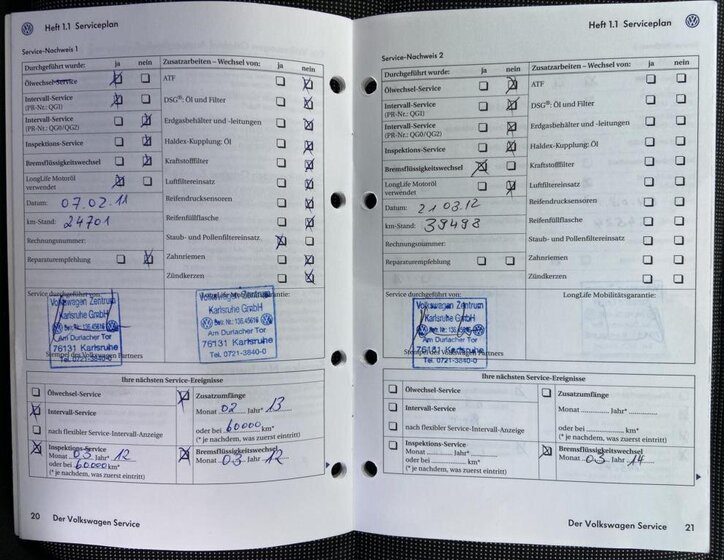 Heft 1.1 Serviceplan
Service-Nachweis 1
Durchgeführt wurde: ja nein
Ölwechsel-Service
Intervall-Service
(PR-Nr.: QG1)
Intervall-Service
(PR-Nr.: QG0/QG2)
Inspektions-Service
Bremsflüssigkeitswechsel
LongLife Motoröl
verwendet
Datum: 07.02.11
km-Stand: 24701
Rechnungsnummer:
Reparaturempfehlung
Zusatzarbeiten – Wechsel von: ja nein
ATF
DSG®: Öl und Filter
Erdgasbehälter und -leitungen
Haldex-Kupplung: Öl
Kraftstofffilter
Luftfiltereinsatz
Reifendrucksensoren
Reifenfüllflasche
Staub- und Pollenfiltereinsatz
Zahnriemen
Zündkerzen
Service durchgeführt von:
LongLife Mobilitätsgarantie:
Volkswagen Zentrum
Karlsruhe GmbH
Betr. Nr.: 136.45616
Am Durlacher Tor
76131 Karlsruhe
Tel. 0721-3840-0
Stempel des Volkswagen Partners
Volkswagen Zentrum
Karlsruhe GmbH
Betr. Nr.: 136.45616
Am Durlacher Tor
76131 Karlsruhe
Tel. 0721-3840-0
Ihre nächsten Service-Ereignisse
Ölwechsel-Service
Intervall-Service
nach flexibler Service-Intervall-Anzeige
Inspektions-Service
Monat 03 Jahr* 12
oder bei 60000 km*
(* je nachdem, was zuerst eintritt)
Zusatzumfänge
Monat 02 Jahr* 13
oder bei 60000 km*
(* je nachdem, was zuerst eintritt)
Bremsflüssigkeitswechsel
Monat 03 Jahr 12
20 Der Volkswagen Service
Heft 1.1 Serviceplan
Service-Nachweis 2
Durchgeführt wurde: ja nein
Ölwechsel-Service
Intervall-Service
(PR-Nr.: QG1)
Intervall-Service
(PR-Nr.: QG0/QG2)
Inspektions-Service
Bremsflüssigkeitswechsel
LongLife Motoröl
verwendet
Datum: 21.03.12
km-Stand: 39498
Rechnungsnummer:
Reparaturempfehlung
Zusatzarbeiten – Wechsel von: ja nein
ATF
DSG®: Öl und Filter
Erdgasbehälter und -leitungen
Haldex-Kupplung: Öl
Kraftstofffilter
Luftfiltereinsatz
Reifendrucksensoren
Reifenfüllflasche
Staub- und Pollenfiltereinsatz
Zahnriemen
Zündkerzen
Service durchgeführt von:
LongLife Mobilitätsgarantie:
Volkswagen Zentrum
Karlsruhe GmbH
Betr. Nr.: 136.45616
Am Durlacher Tor
76131 Karlsruhe
Tel. 0721-3840-0
Stempel des Volkswagen Partners
Ihre nächsten Service-Ereignisse
Ölwechsel-Service
Intervall-Service
nach flexibler Service-Intervall-Anzeige
Inspektions-Service
Monat Jahr*
oder bei km*
(* je nachdem, was zuerst eintritt)
Zusatzumfänge
Monat Jahr*
oder bei km*
(* je nachdem, was zuerst eintritt)
Bremsflüssigkeitswechsel
Monat 03 Jahr 14
Der Volkswagen Service 21